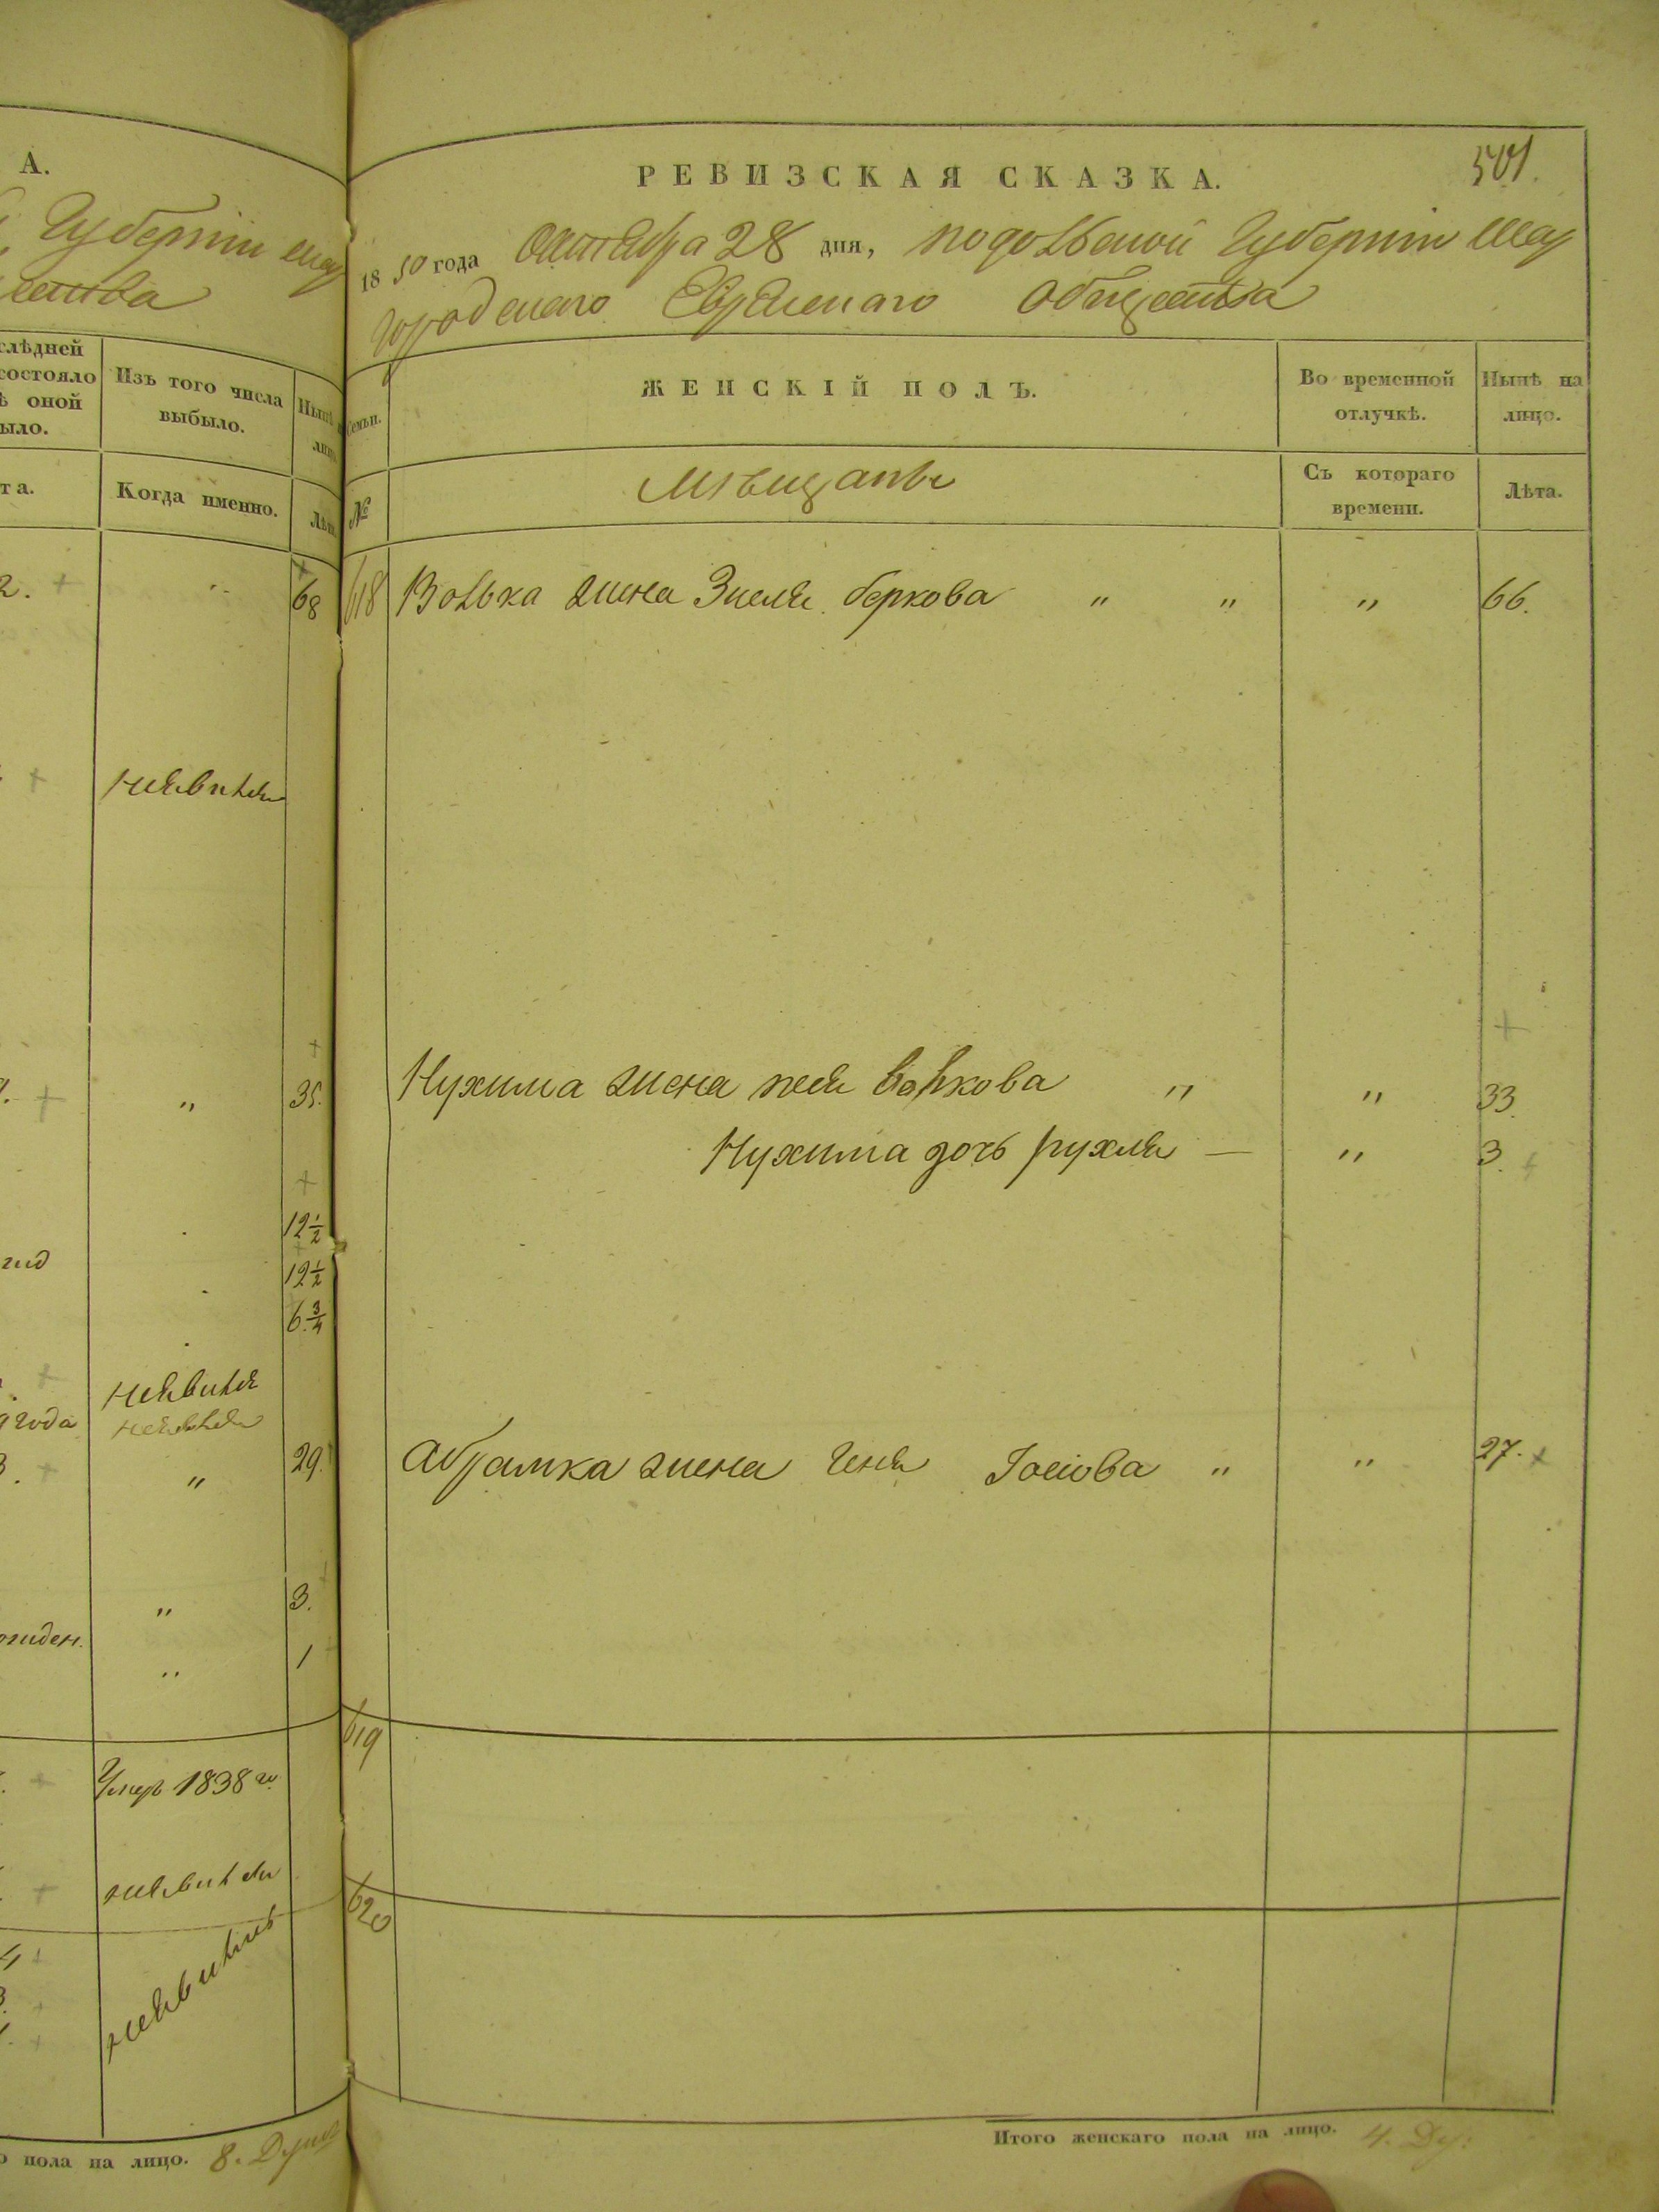 А.
Губерніи шар
слѣдней
состояло
ѣ оной
ыло.
Изъ того числа
выбыло.
Нынѣ
лицо
та.
Когда именно.
Лѣта
2.
68
неявился
"
35.
12½
12½
6¾
неявился
года
неявился
"
29.
"
3.
рожден.
1
Умер 1838 го
неявился
неявились
о пола на лицо. 8. Душ
РЕВИЗСКАЯ СКАЗКА.
501.
1850 года Октября 28 дня, подольской Губерніи шар
городскаго Еврейскаго общества
Семьи.
ЖЕНСКІЙ ПОЛЪ.
Во временной
отлучкѣ.
Нынѣ на
лицо.
№
Мѣщане
Съ котораго
времени.
Лѣта.
618 Волька жена Зисля беркова " " " 66.
Нухима жена песя волкова " " 33.
Нухима дочь рухля — " 3.
Абрамка жена Геня Іосіова " " 27.
619
620
Итого женскаго пола на лицо. 4. Ду: